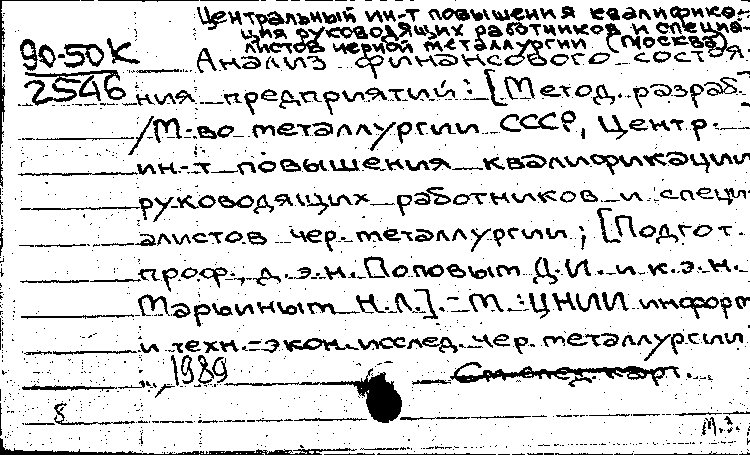 Центральный ин-т повышения квалифика-
ция руководящих работников и специа-
листов черной металлургии (Москва)
90-50К
2546
Анализ финансового состоя
ния предприятий: [Метод. разраб
/М-во металлургии СССР, Центр.
ин-т повышения квалификации
руководящих работников и специ
алистов чер. металлургии; [Подгот.
проф., д.э.н. Поповым Д.И. и к.э.н.
Марьиным Н.Л.]. - М.: ЦНИИ информ
и техн.-экон. исслед. чер. металлургии
..., 1989
См след. карт.
8
М.З.